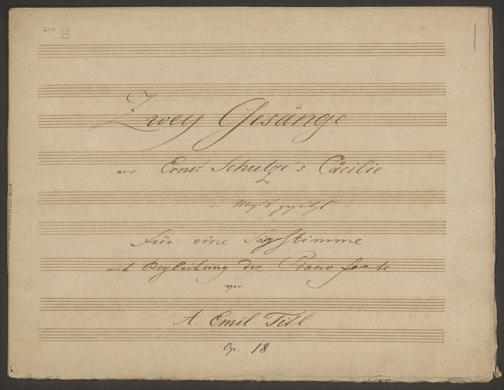 Zwey Gesänge
aus Ernst Schulze's Cäcilie
in Musik gesetzt
für eine Singstimme
mit Begleitung des Piano forte
von
A. Emil Titl
Op. 18